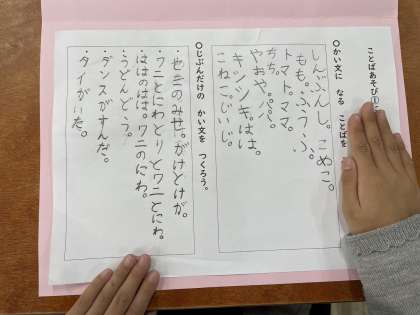 ことばあそび①
○かい文に なる ことばを
しんぶんし。こめこ。
もも。ふうふ。
トマト。ママ。
ちち。
やおや。パパ。
キンツキはは。
こねこじいじ。
○じぶんだけの かい文を つくろう。
・せきのみせ。がけとけが。
・ワニとにわとりとワニとにわ。
ははのはは。ワニのにわ。
・うどんどう。
・ダンスがすんだ。
・タイがいた。